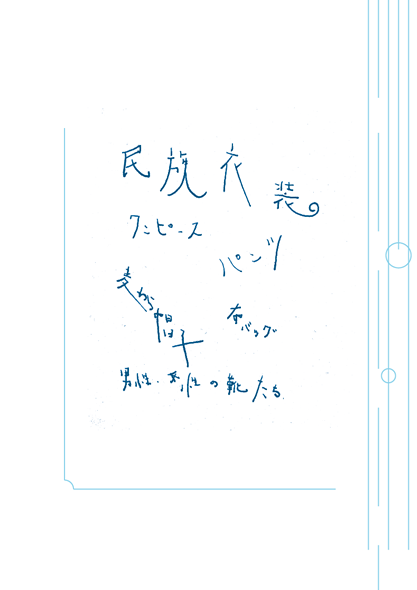 民族衣装
ワンピース
パンツ
麦わら帽子
布バッグ
男性・女性の靴たち